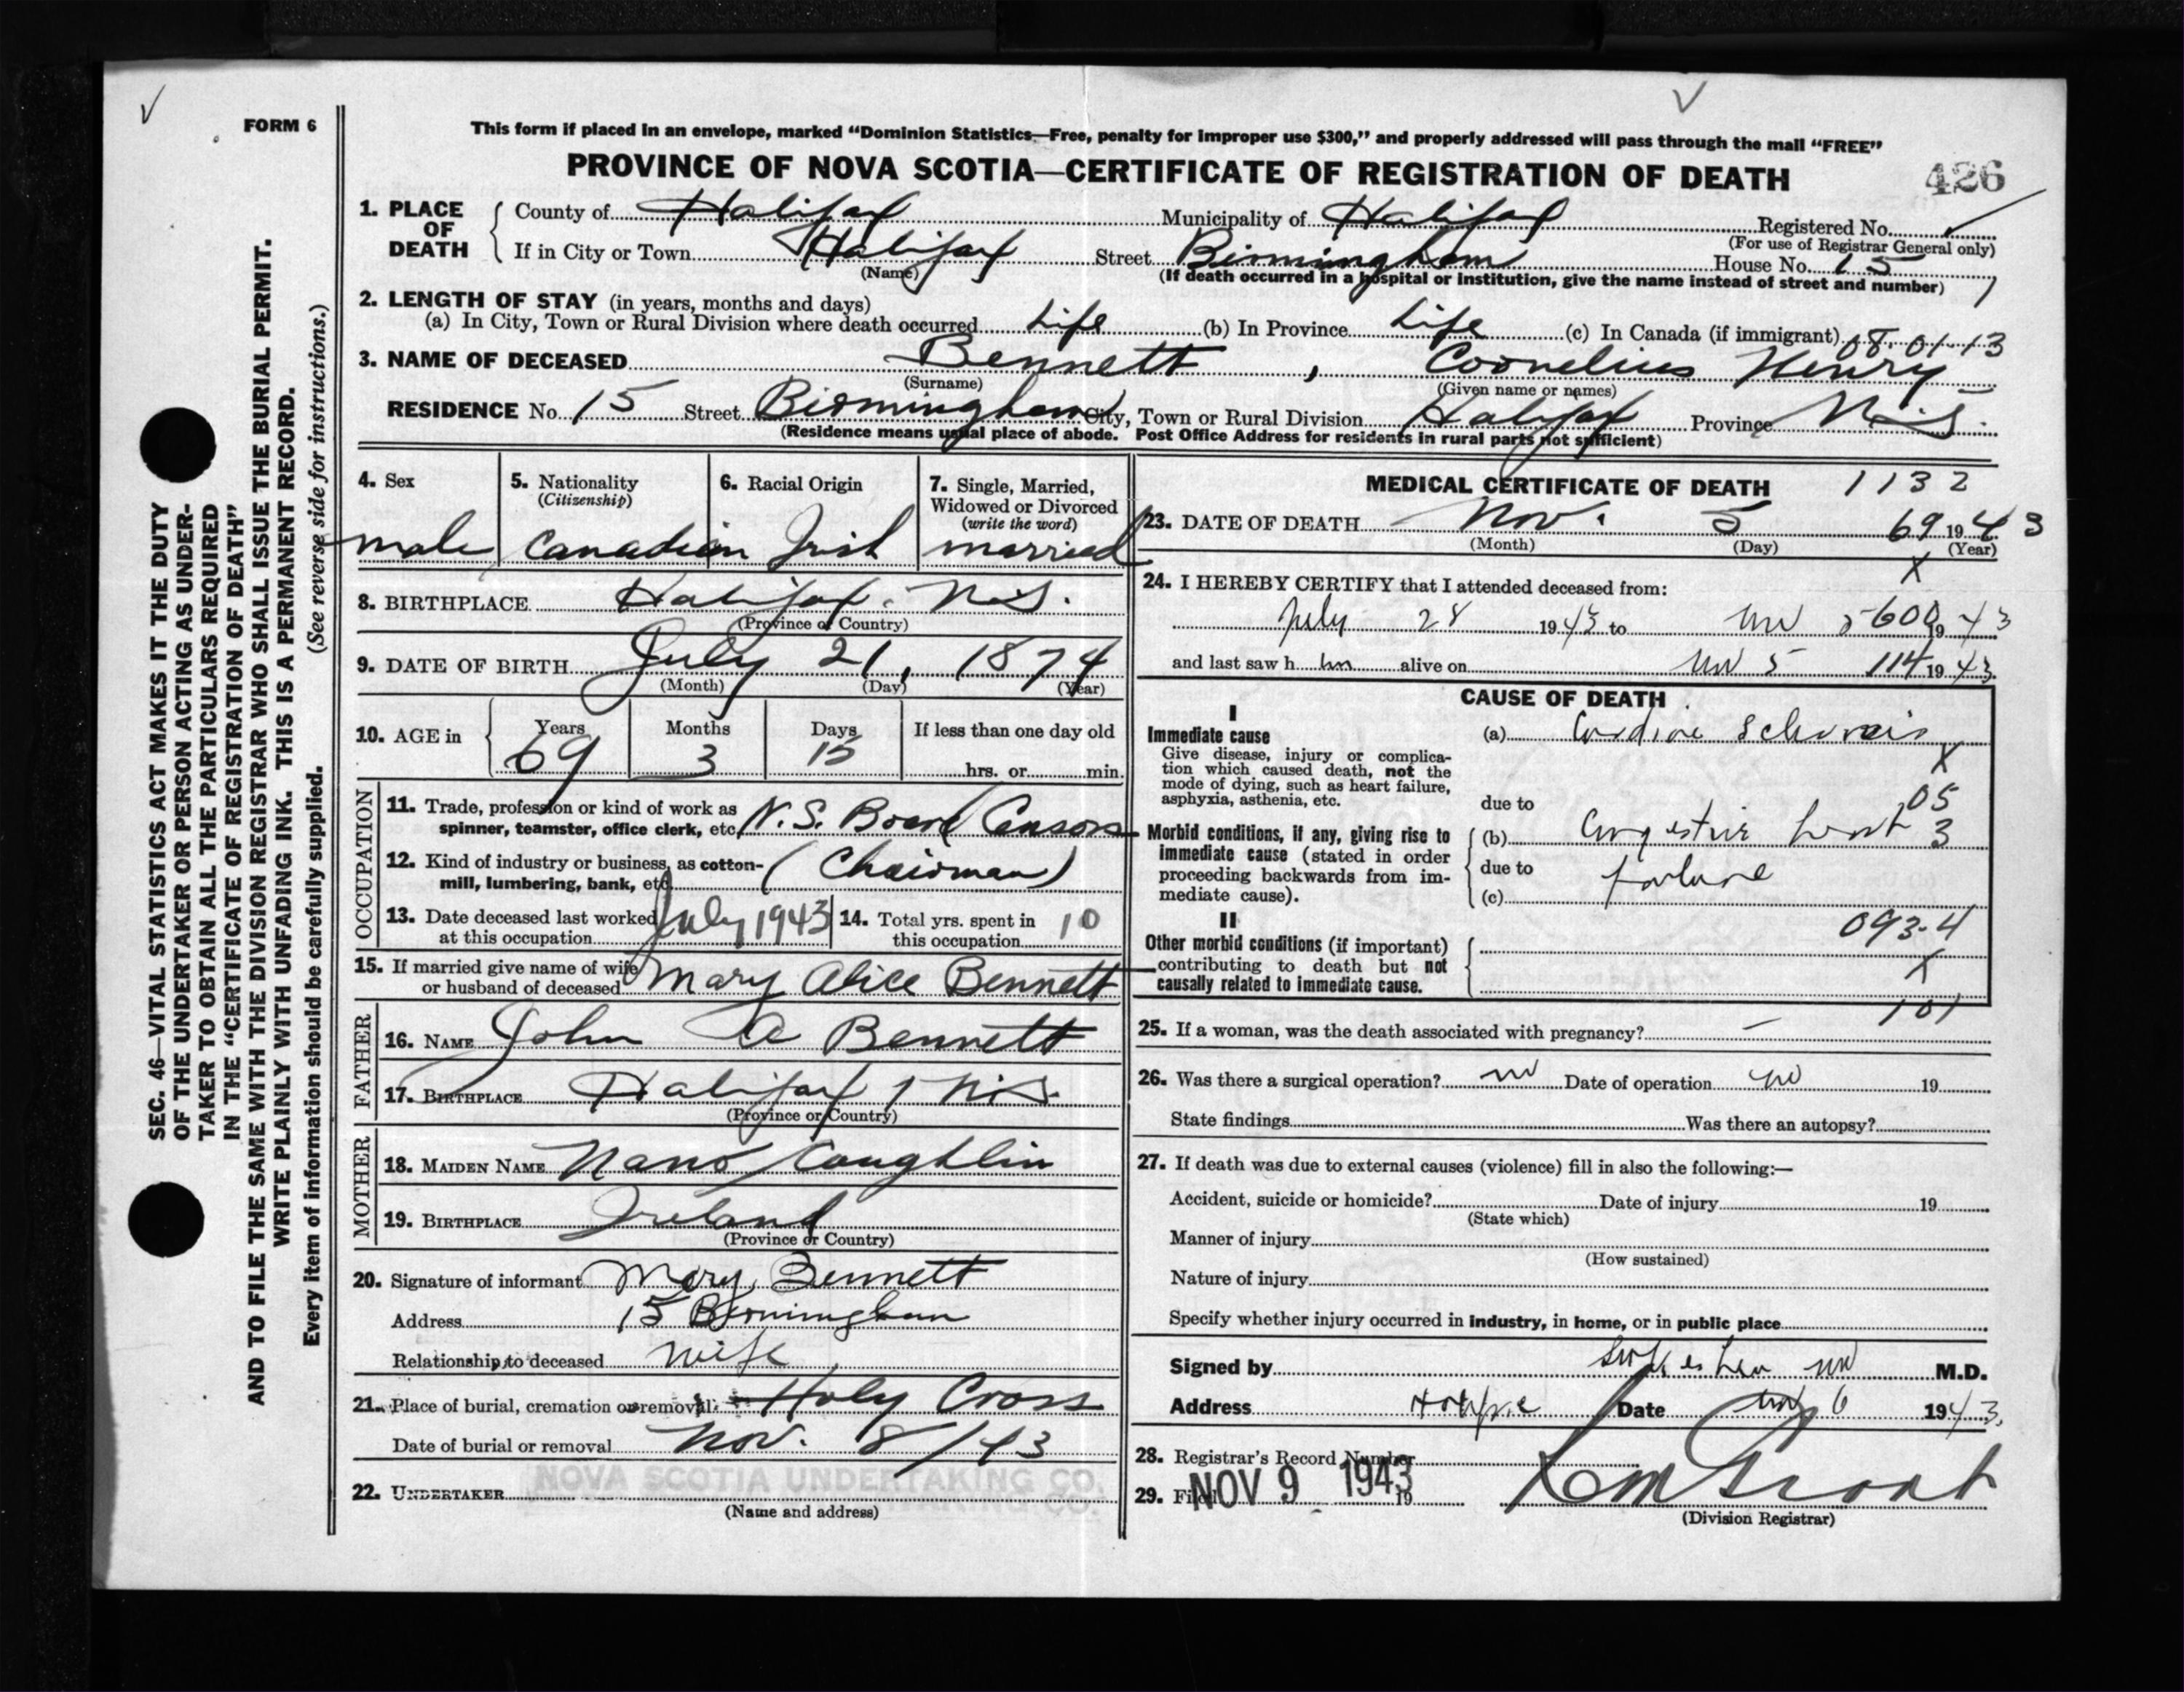 FORM 6
SEC. 46—VITAL STATISTICS ACT MAKES IT THE DUTY
OF THE UNDERTAKER OR PERSON ACTING AS UNDER-
TAKER TO OBTAIN ALL THE PARTICULARS REQUIRED
IN THE "CERTIFICATE OF REGISTRATION OF DEATH"
AND TO FILE THE SAME WITH THE DIVISION REGISTRAR WHO SHALL ISSUE THE BURIAL PERMIT.
WRITE PLAINLY WITH UNFADING INK. THIS IS A PERMANENT RECORD.
Every item of information should be carefully supplied. (See reverse side for instructions.)
This form if placed in an envelope, marked "Dominion Statistics—Free, penalty for improper use $300," and properly addressed will pass through the mail "FREE"
PROVINCE OF NOVA SCOTIA—CERTIFICATE OF REGISTRATION OF DEATH
426
1. PLACE OF DEATH County of Halifax Municipality of Halifax Registered No.
(For use of Registrar General only)
If in City or Town Halifax Street Birmingham House No. 15
(Name) (If death occurred in a hospital or institution, give the name instead of street and number)
2. LENGTH OF STAY (in years, months and days)
(a) In City, Town or Rural Division where death occurred Life (b) In Province Life (c) In Canada (if immigrant) 08-01-13
3. NAME OF DECEASED Bennett, Cornelius Henry
(Surname) (Given name or names)
RESIDENCE No. 15 Street Birmingham City, Town or Rural Division Halifax Province N.S.
(Residence means usual place of abode. Post Office Address for residents in rural parts not sufficient)
4. Sex 5. Nationality 6. Racial Origin 7. Single, Married,
(Citizenship) Widowed or Divorced
(write the word)
male Canadian Irish married
8. BIRTHPLACE Halifax. N.S.
(Province or Country)
9. DATE OF BIRTH July 21, 1874
(Month) (Day) (Year)
10. AGE in Years Months Days If less than one day old
69 3 15 hrs. or min.
OCCUPATION
11. Trade, profession or kind of work as
spinner, teamster, office clerk, etc. N.S. Board Censors
12. Kind of industry or business, as cotton-
mill, lumbering, bank, etc. (Chairman)
13. Date deceased last worked
at this occupation July 1943
14. Total yrs. spent in
this occupation 10
15. If married give name of wife
or husband of deceased Mary Alice Bennett
FATHER
16. NAME John A Bennett
17. BIRTHPLACE Halifax, N.S.
(Province or Country)
MOTHER
18. MAIDEN NAME Nano Coughlin
19. BIRTHPLACE Ireland
(Province or Country)
20. Signature of informant Mary Bennett
Address 15 Birmingham
Relationship to deceased wife
21. Place of burial, cremation or removal Holy Cross
Date of burial or removal Nov. 8/43
22. UNDERTAKER NOVA SCOTIA UNDERTAKING CO.
(Name and address)
MEDICAL CERTIFICATE OF DEATH 1132
23. DATE OF DEATH Nov. 5 69 1943
(Month) (Day) (Year)
X
24. I HEREBY CERTIFY that I attended deceased from:
July 28 1943 to Nov 5 600 1943
and last saw h im alive on Nov 5 114 1943
CAUSE OF DEATH
I
Immediate cause
Give disease, injury or complica-
tion which caused death, not the
mode of dying, such as heart failure,
asphyxia, asthenia, etc.
(a) Cardiac Sclerosis
X
due to 05
Morbid conditions, if any, giving rise to
immediate cause (stated in order
proceeding backwards from im-
mediate cause).
(b) Congestive heart 3
due to failure
(c)
093-4
II
Other morbid conditions (if important)
contributing to death but not
causally related to immediate cause.
X
101
25. If a woman, was the death associated with pregnancy? —
26. Was there a surgical operation? no Date of operation no 19
State findings Was there an autopsy?
27. If death was due to external causes (violence) fill in also the following:—
Accident, suicide or homicide? Date of injury 19
(State which)
Manner of injury
(How sustained)
Nature of injury
Specify whether injury occurred in industry, in home, or in public place
Signed by M.D.
Address Date Nov 6 1943.
28. Registrar's Record Number
29. Filed NOV 9 1943 19
(Division Registrar)